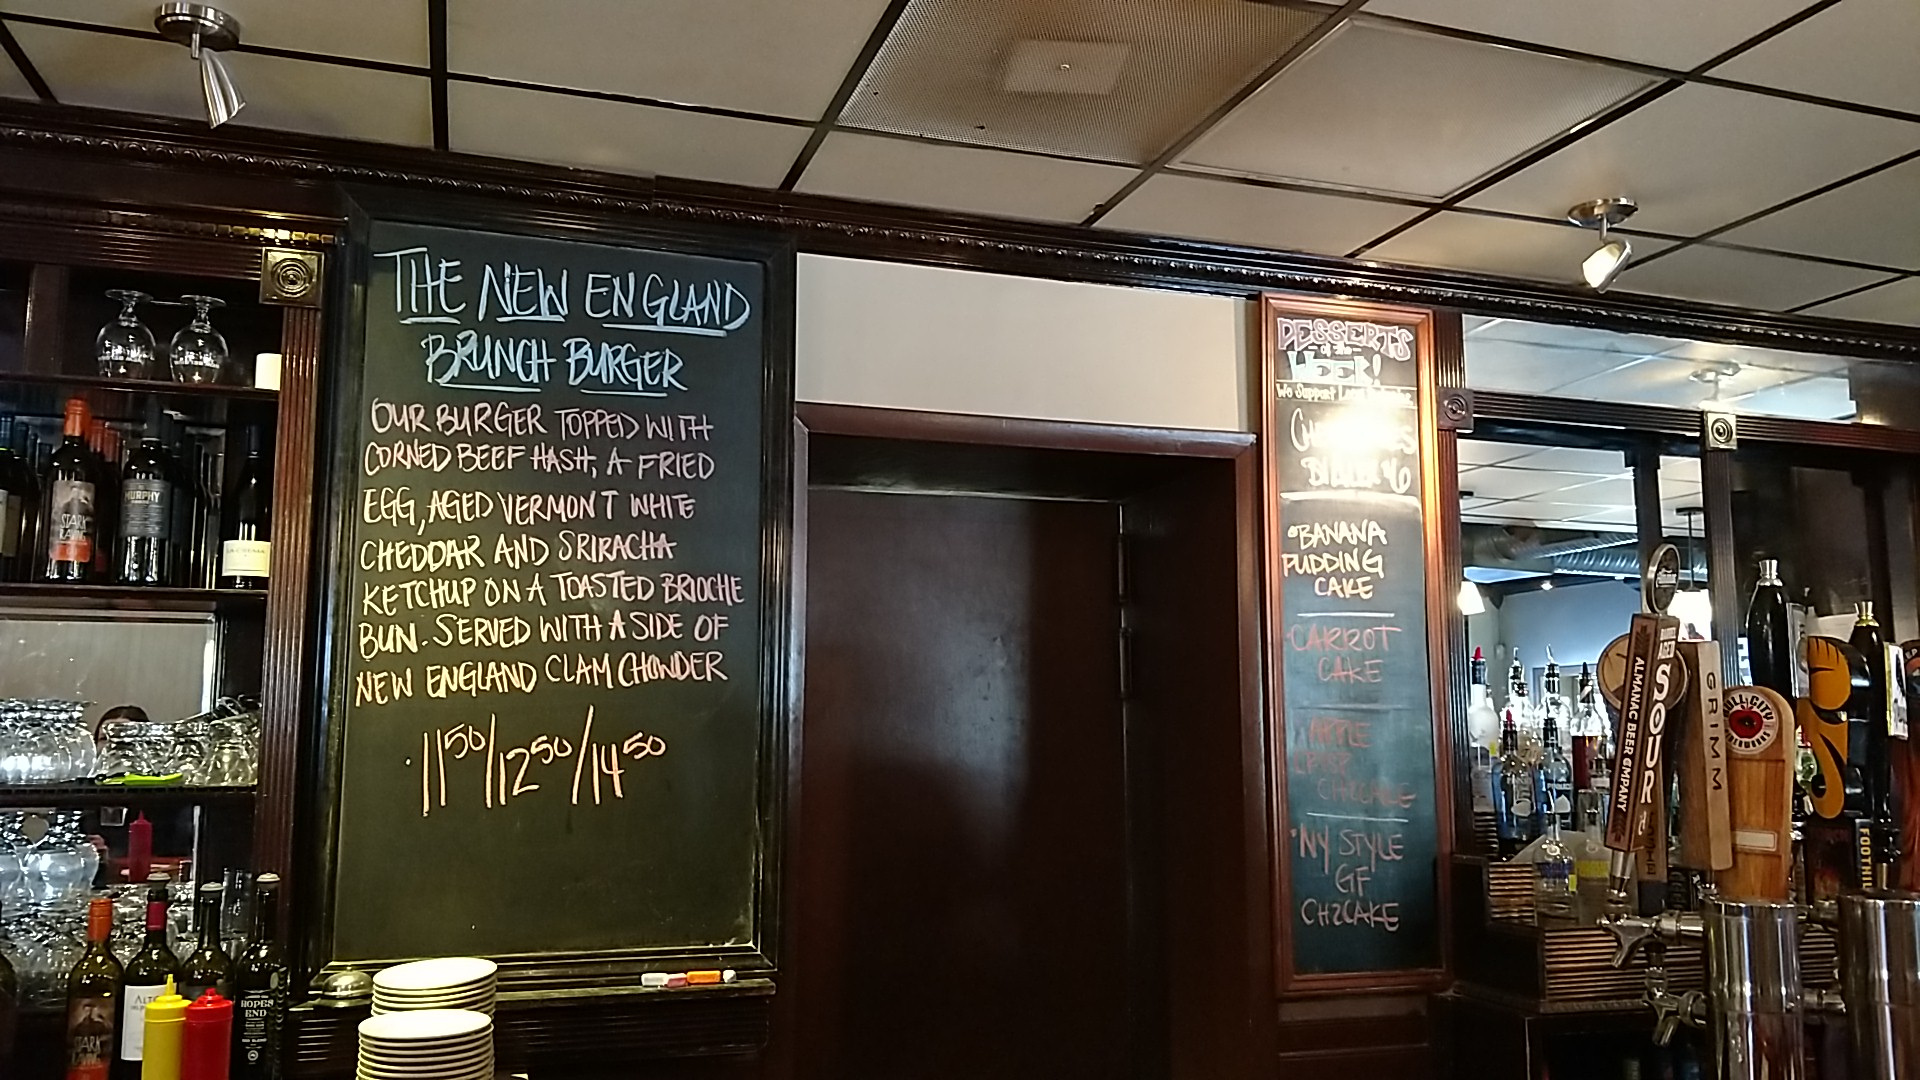 THE NEW ENGLAND
BRUNCH BURGER
OUR BURGER TOPPED WITH
CORNED BEEF HASH, A FRIED
EGG, AGED VERMONT WHITE
CHEDDAR AND SRIRACHA
KETCHUP ON A TOASTED BRIOCHE
BUN. SERVED WITH A SIDE OF
NEW ENGLAND CLAM CHOWDER
11 50/12 50/14 50
DESSERTS
of the
WEEK!
We Support Local
BANANA
PUDDING
CAKE
CARROT
CAKE
APPLE
CRISP
CHZCAKE
NY STYLE
GF
CHZCAKE
STARK
RAVING
MURPHY
HOPES
END
BARREL
AGED
SOUR
ALMANAC BEER COMPANY
GRIMM
BULL CITY
CIDERWORKS